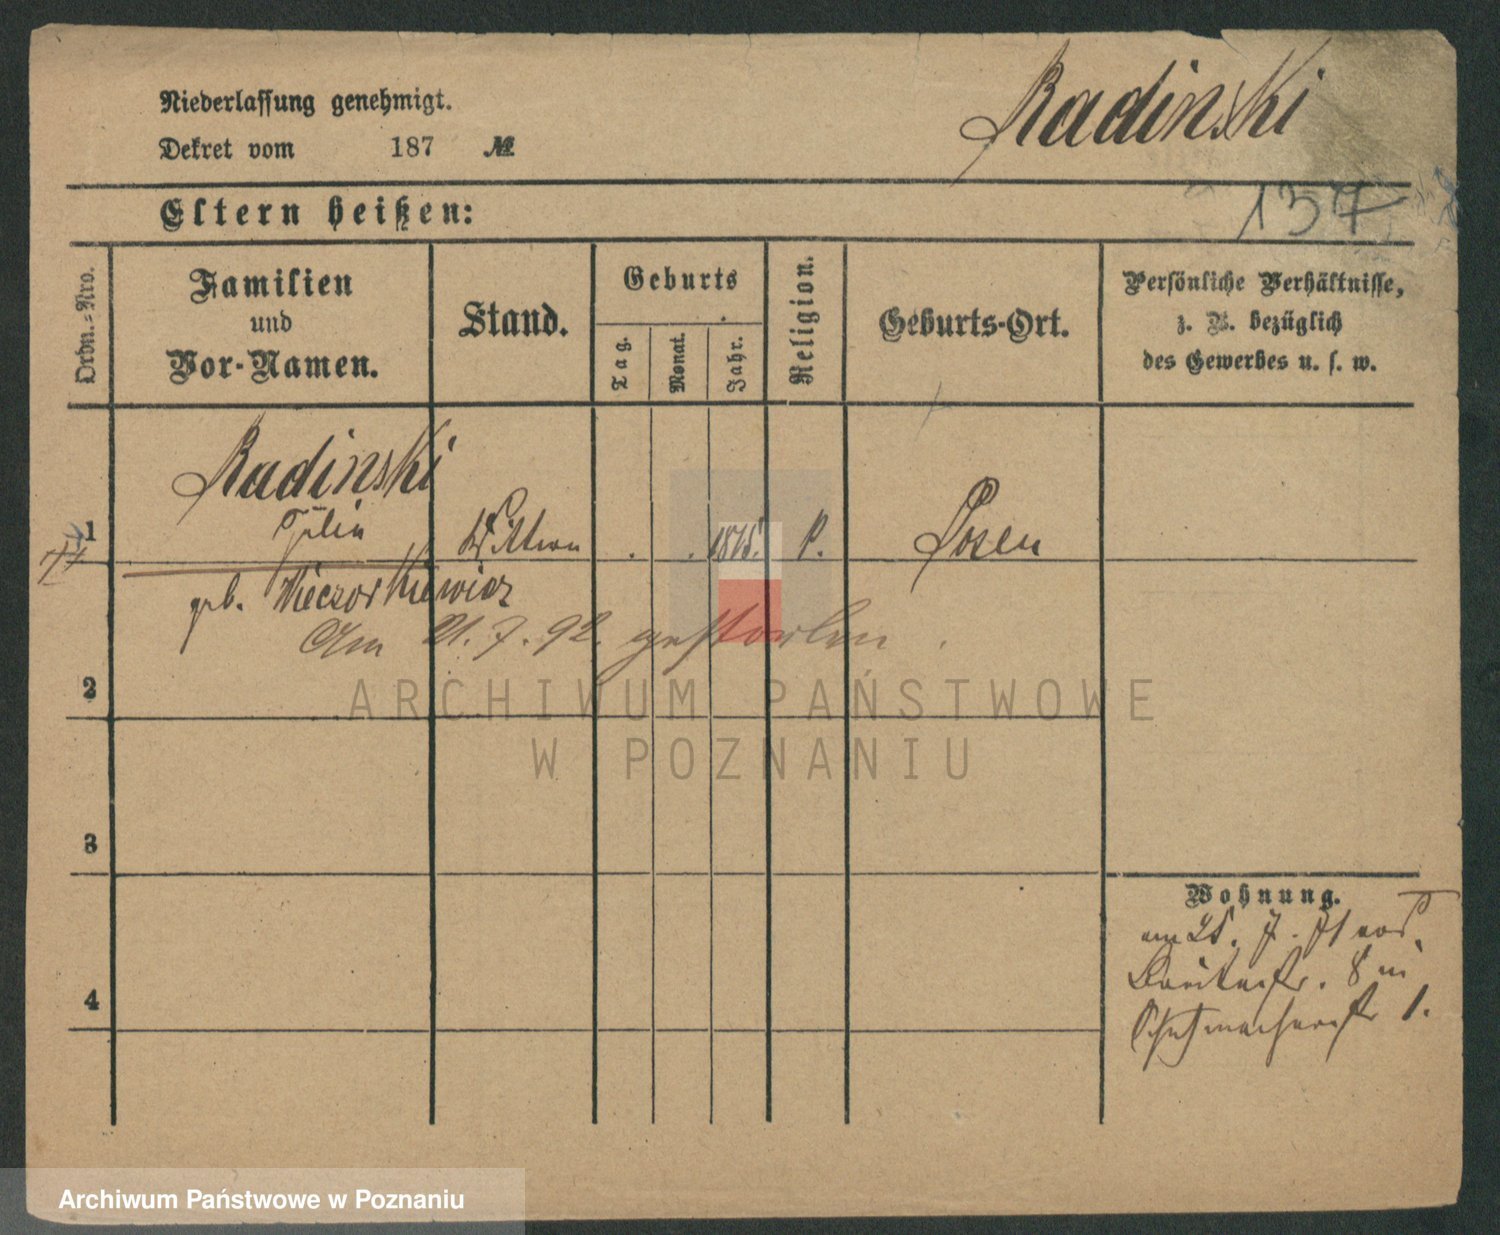 Radinski
Niederlassung genehmigt.
Dekret vom 187 №
137
Eltern heißen:
Ordn.-Nro.
Familien
und
Vor-Namen.
Stand.
Geburts
Tag.
Monat.
Jahr.
Religion.
Geburts-Ort.
Persönliche Verhältnisse,
z. B. bezüglich
des Gewerbes u. s. w.
Radinski
1 Wittwe . . 1815. P. Posen
geb. Wieczorkiewicz
Am 21.7.92. gestorben.
2
ARCHIWUM PAŃSTWOWE
W POZNANIU
3
Wohnung.
am 25. 7.
8 in
4
Schuhmacherstr 1.
Archiwum Państwowe w Poznaniu